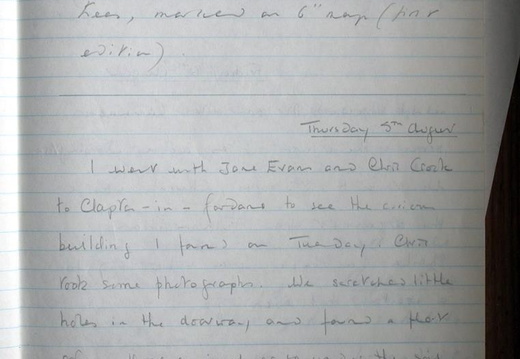 Kees, marked on 6" map (first
edition)
Thursday 5th August
I went with Jane Evan and Chris Crook
to Clapton-in-Gordano to see the
building I found on Tuesday. Chris
took some photographs. We scratched little
holes in the doorway and found a